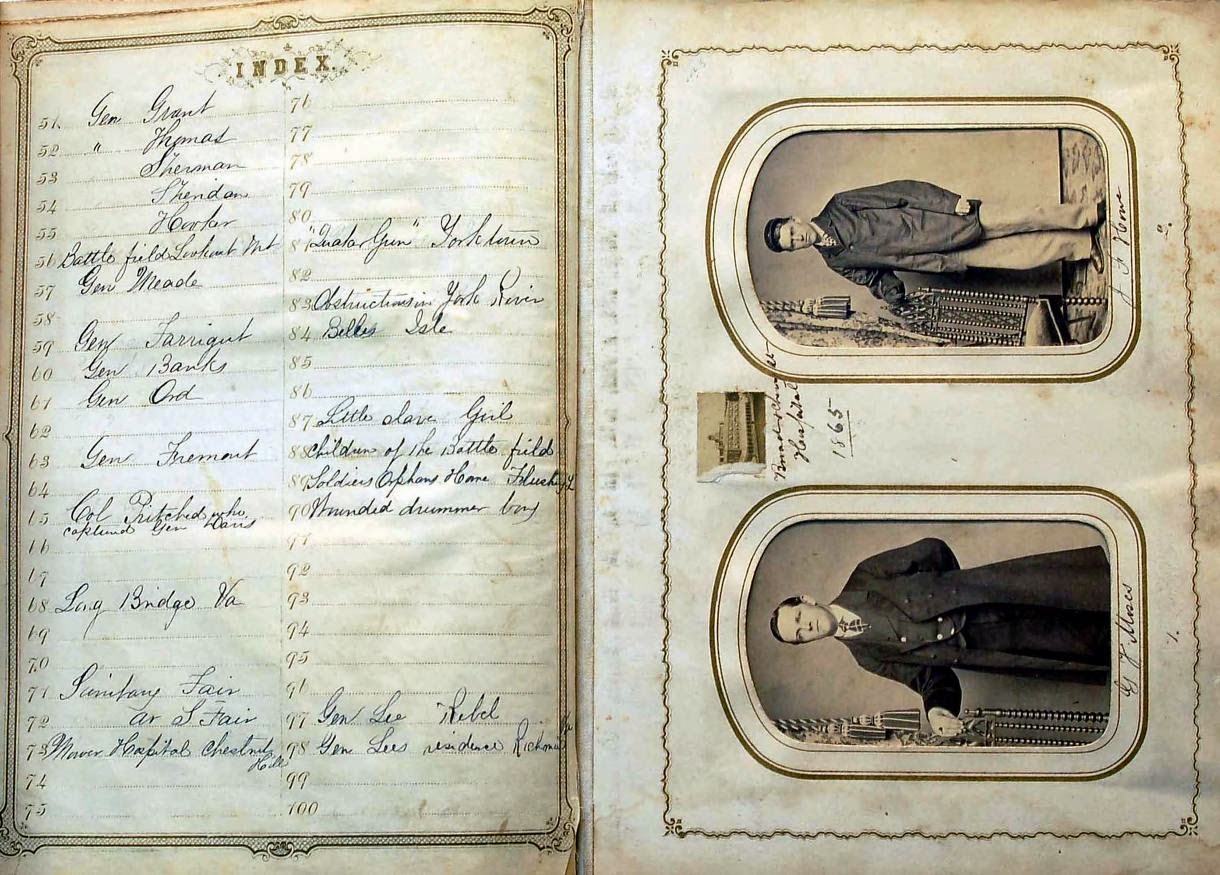 INDEX.
51 Gen Grant
52 " Thomas
53 Sherman
54 Sheridan
55 Hooker
56 Battle field Lookout Mt
57 Gen Meade
58
59 Gen Farrigut
60 Gen Banks
61 Gen Ord
62
63 Gen Fremont
64
65 Col Pritched who
captured Gen Davis
66
67
68 Long Bridge Va
69
70
71 Sanitary Fair
72 ar S Fair
73 Mower Hospital Chestnut
Hill
74
75
76
77
78
79
80
81 "Quaker Gun" Yorktown
82
83 Obstructions in York River
84 Belles Isle
85
86
87 Little slave Girl
88 Children of the Battle field
89 Soldiers Orphans Home
90 Wounded drummer boy
91
92
93
94
95
96
97 Gen Lee Rebel
98 Gen Lees residence Richmond
99
100
J F Howe
Hospital
1865
G F Moses